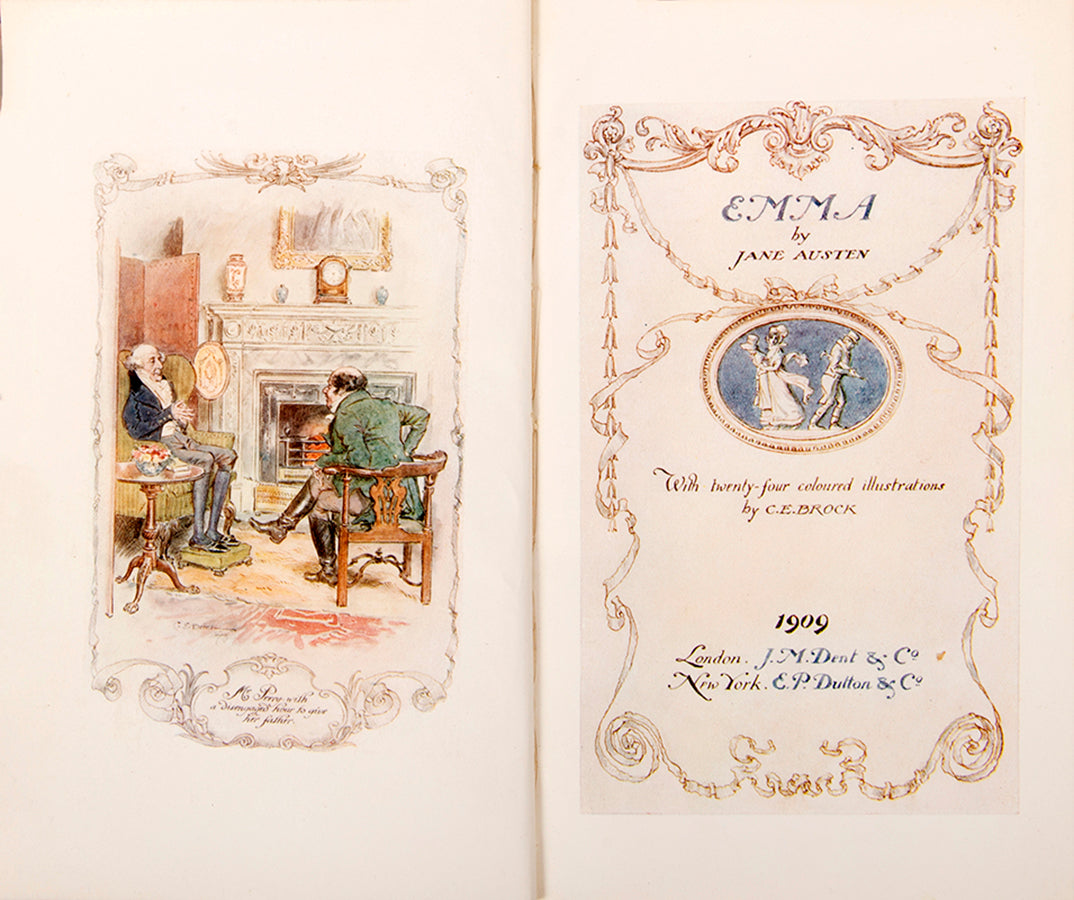 Mr Perry with
a disengaged hour to give
her father.
EMMA
by
JANE AUSTEN
With twenty-four coloured illustrations
by C.E.BROCK
1909
London. J.M.Dent & Co
New York. E.P.Dutton & Co